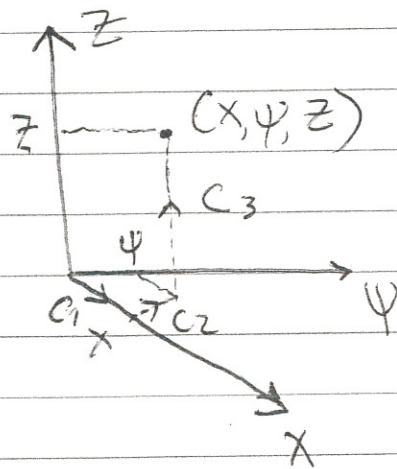 Z
Z (X, ψ, Z)
C₃
ψ
C₁ C₂
X
ψ
X